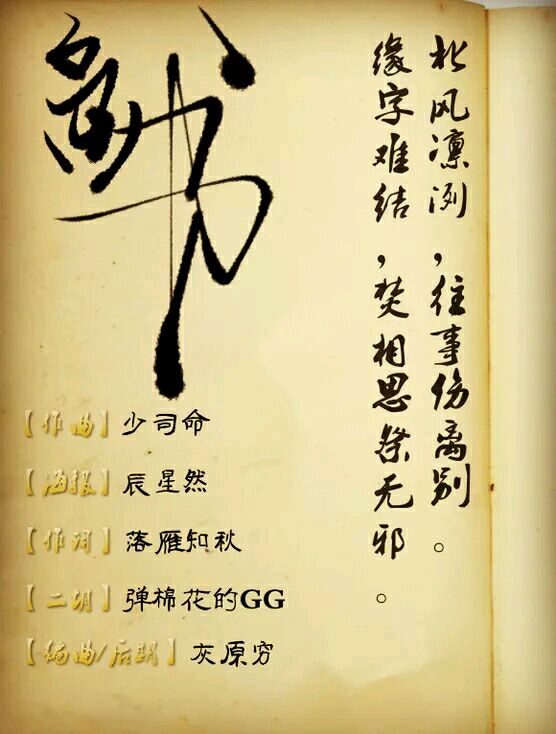 北风凛冽，往事伤离别。
缘字难结，焚相思祭无邪。
【作曲】少司命
【海报】辰星然
【作词】落雁知秋
【二胡】弹棉花的GG
【编曲/后期】灰原穷